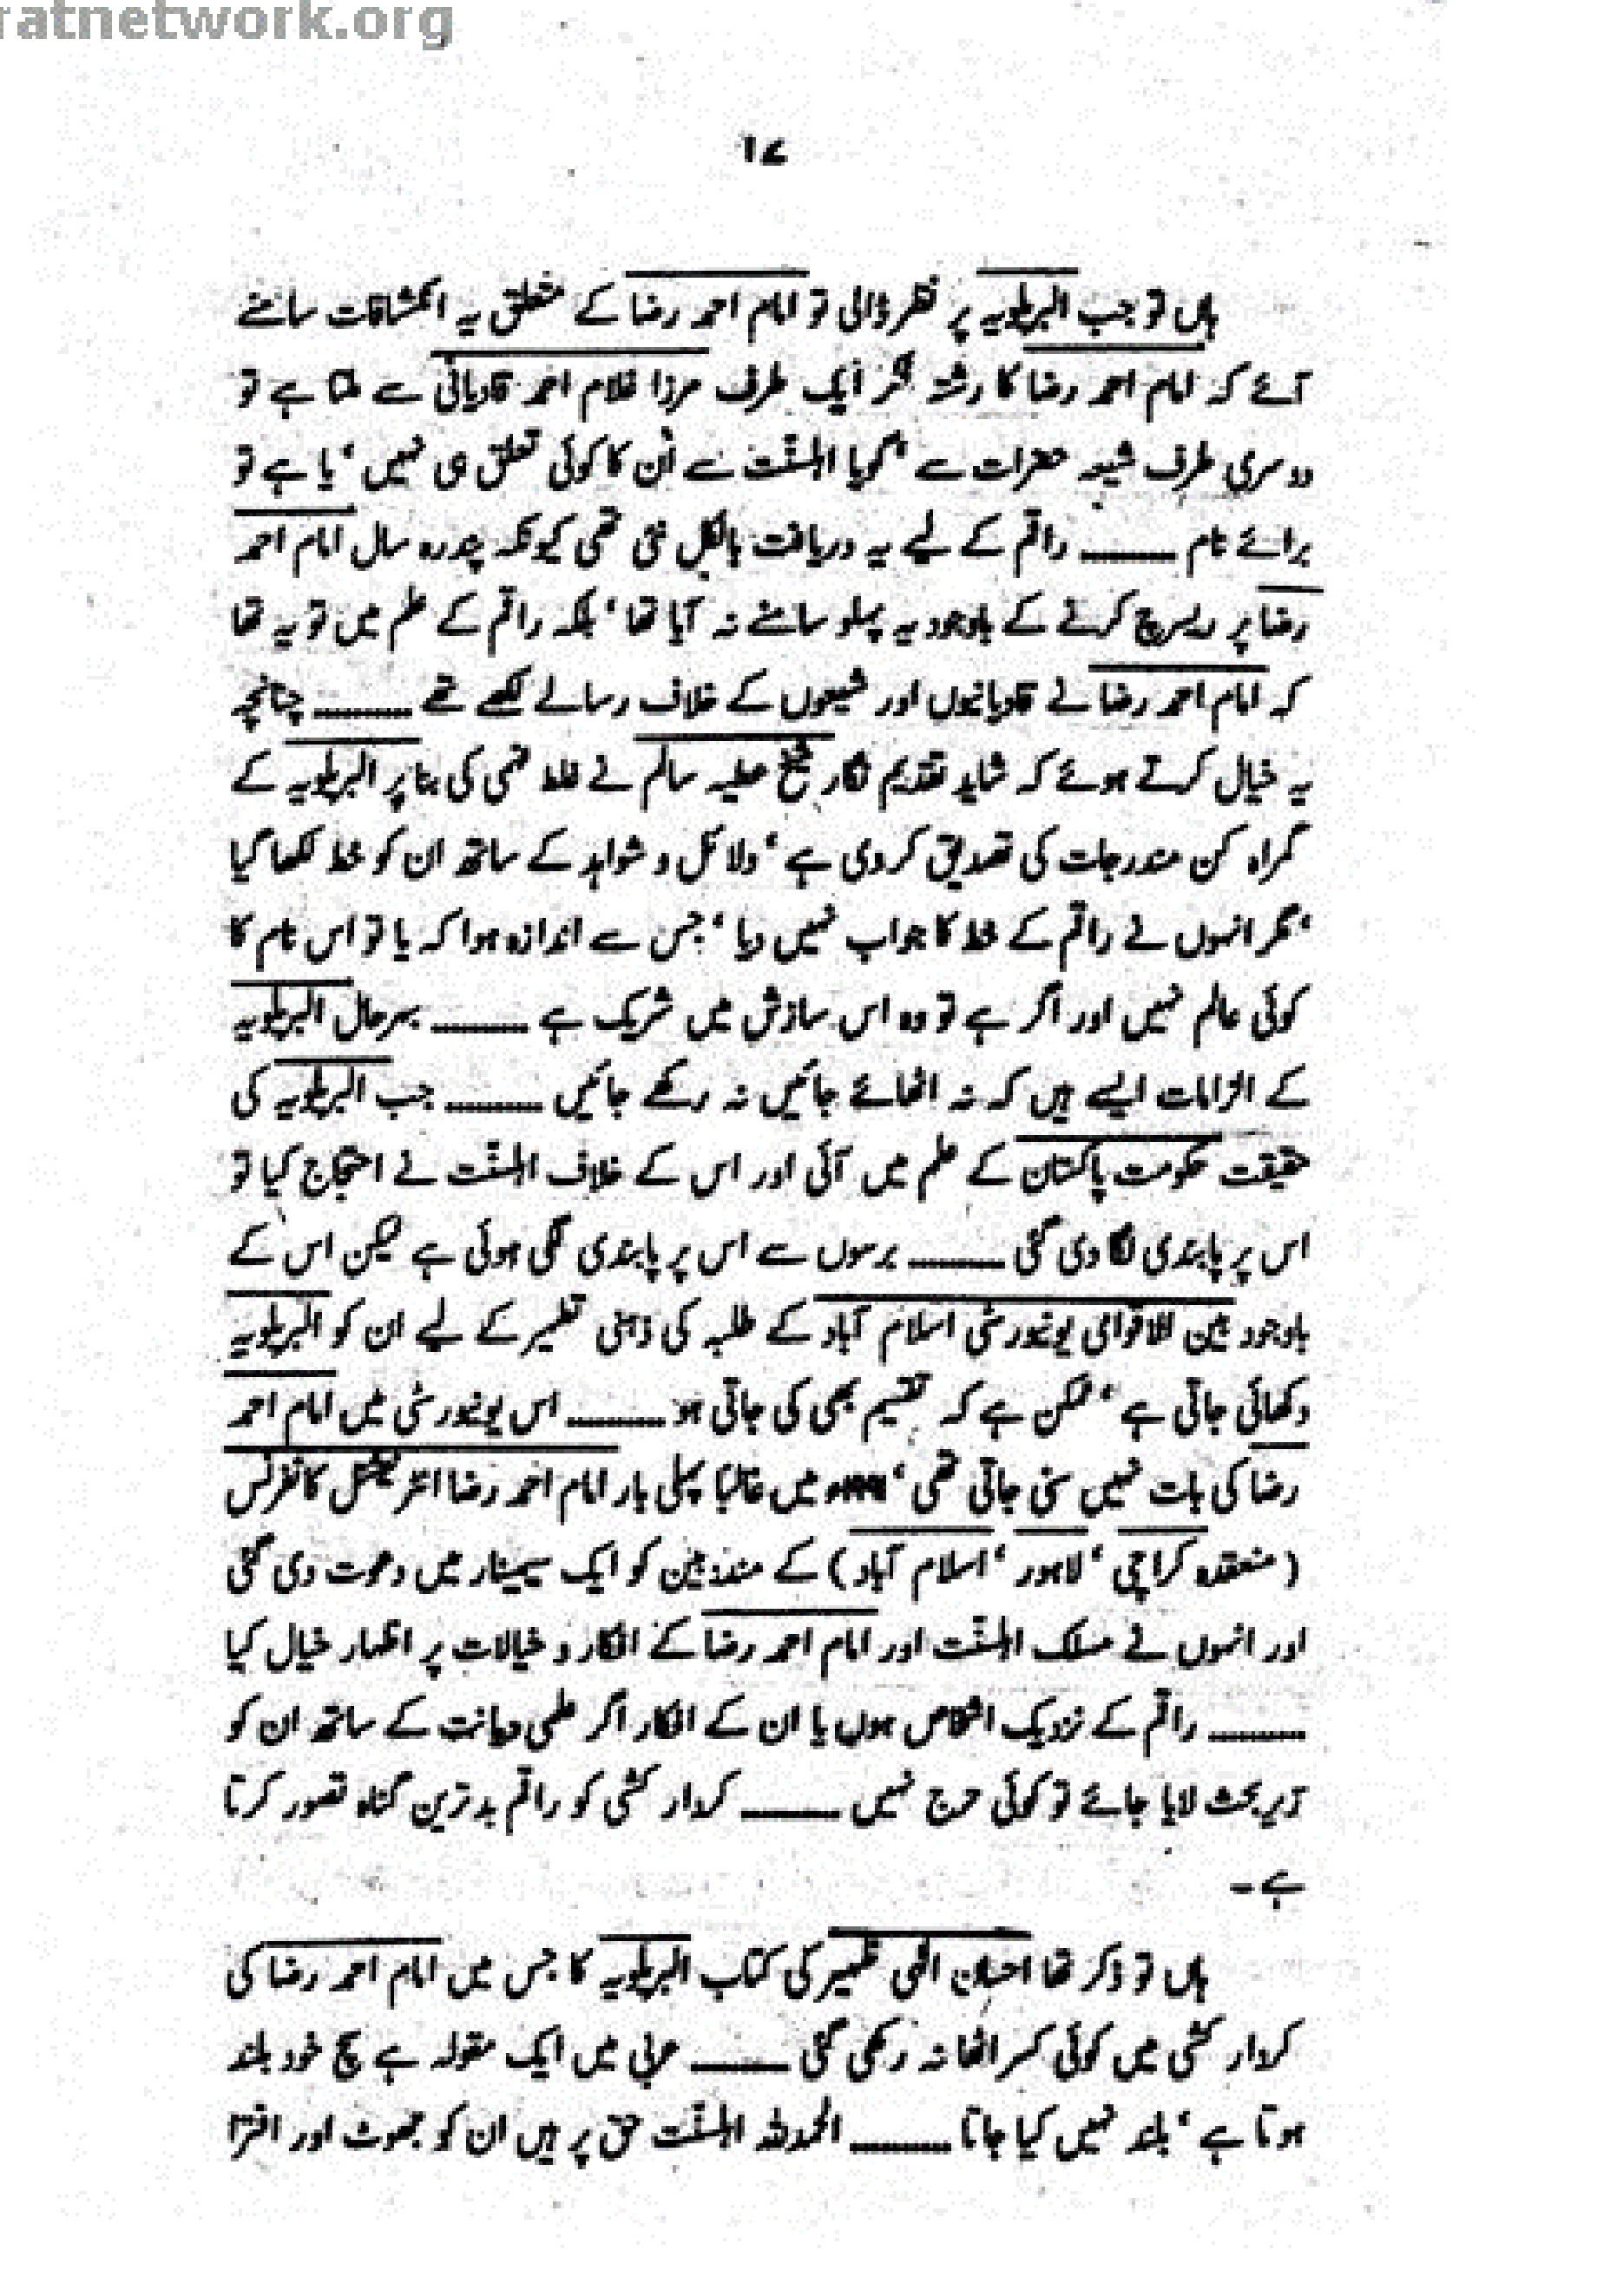 ratnetwork.org
۱۷
ہاں تو جب البریلویہ پر نظر ڈالی تو امام احمد رضا کے متعلق یہ انکشافات سامنے
آئے کہ امام احمد رضا کا رشتہ فکر ایک طرف مرزا غلام احمد قادیانی سے ملتا ہے تو
دوسری طرف شیعہ حضرات سے ‘ گویا اہلسنّت سے اُن کا کوئی تعلق ہی نہیں ‘ یا ہے تو
برائے نام ........... راقم کے لیے یہ دریافت بالکل نئی تھی کیونکہ پندرہ سال امام احمد
رضا پر ریسرچ کرنے کے باوجود یہ پہلو سامنے نہ آیا تھا ‘ بلکہ راقم کے علم میں تو یہ تھا
کہ امام احمد رضا نے قادیانیوں اور شیعوں کے خلاف رسالے لکھے تھے ........... چنانچہ
یہ خیال کرتے ہوئے کہ شاید تقدیم نگار شیخ عطیہ سالم نے غلط فہمی کی بنا پر البریلویہ کے
گمراہ کن مندرجات کی تصدیق کر دی ہے ‘ دلائل و شواہد کے ساتھ ان کو خط لکھا گیا
‘ مگر انہوں نے راقم کے خط کا جواب نہیں دیا ‘ جس سے اندازہ ہوا کہ یا تو اس نام کا
کوئی عالم نہیں اور اگر ہے تو وہ اس سازش میں شریک ہے ........... بہرحال البریلویہ
کے الزامات ایسے ہیں کہ نہ اٹھائے جائیں نہ رکھے جائیں ........... جب البریلویہ کی
حقیقت حکومت پاکستان کے علم میں آئی اور اس کے خلاف اہلسنّت نے احتجاج کیا تو
اس پر پابندی لگا دی گئی ........... برسوں سے اس پر پابندی لگی ہوئی ہے لیکن اس کے
باوجود بین الاقوامی یونیورسٹی اسلام آباد کے طلبہ کی ذہنی تطہیر کے لیے ان کو البریلویہ
دکھائی جاتی ہے ‘ ممکن ہے کہ تقسیم بھی کی جاتی ہو ........... اس یونیورسٹی میں امام احمد
رضا کی بات نہیں سنی جاتی تھی ‘ میں غالباً پہلی بار امام احمد رضا انٹر نیشنل کانفرنس
(منعقدہ کراچی ‘ لاہور ‘ اسلام آباد) کے مندوبین کو ایک سیمینار میں دعوت دی گئی
اور انہوں نے مسلک اہلسنّت اور امام احمد رضا کے افکار و خیالات پر اظہار خیال کیا
........... راقم کے نزدیک اشخاص ہوں یا ان کے افکار اگر علمی دیانت کے ساتھ ان کو
زیر بحث لایا جائے تو کوئی حرج نہیں ........... کردار کشی کو راقم بدترین گناہ تصور کرتا
ہے ۔
ہاں تو ذکر تھا احسان الٰہی ظہیر کی کتاب البریلویہ کا جس میں امام احمد رضا کی
کردار کشی میں کوئی کسر اٹھا نہ رکھی گئی ........... عربی میں ایک مقولہ ہے سچ خود بلند
ہوتا ہے ‘ بلند نہیں کیا جاتا ........... الحمدللہ اہلسنّت حق پر ہیں ان کو جھوٹ اور افترا